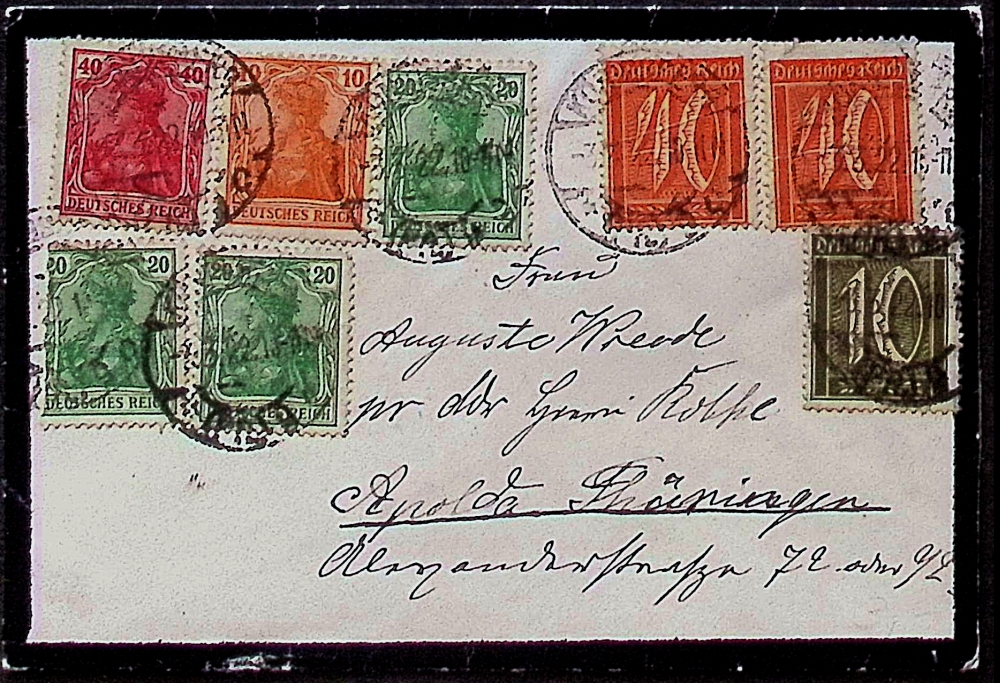 40 40
DEUTSCHES REICH
10 10
DEUTSCHES REICH
20 20
DEUTSCHES REICH
Deutsches Reich
40
Deutsches Reich
40
20 20
DEUTSCHES REICH
20 20
DEUTSCHES REICH
Deutsches Reich
10
Frau
Auguste Wrede
pr Adr Herrn Kothe
Apolda Thüringen
Alexanderstraße 72 oder